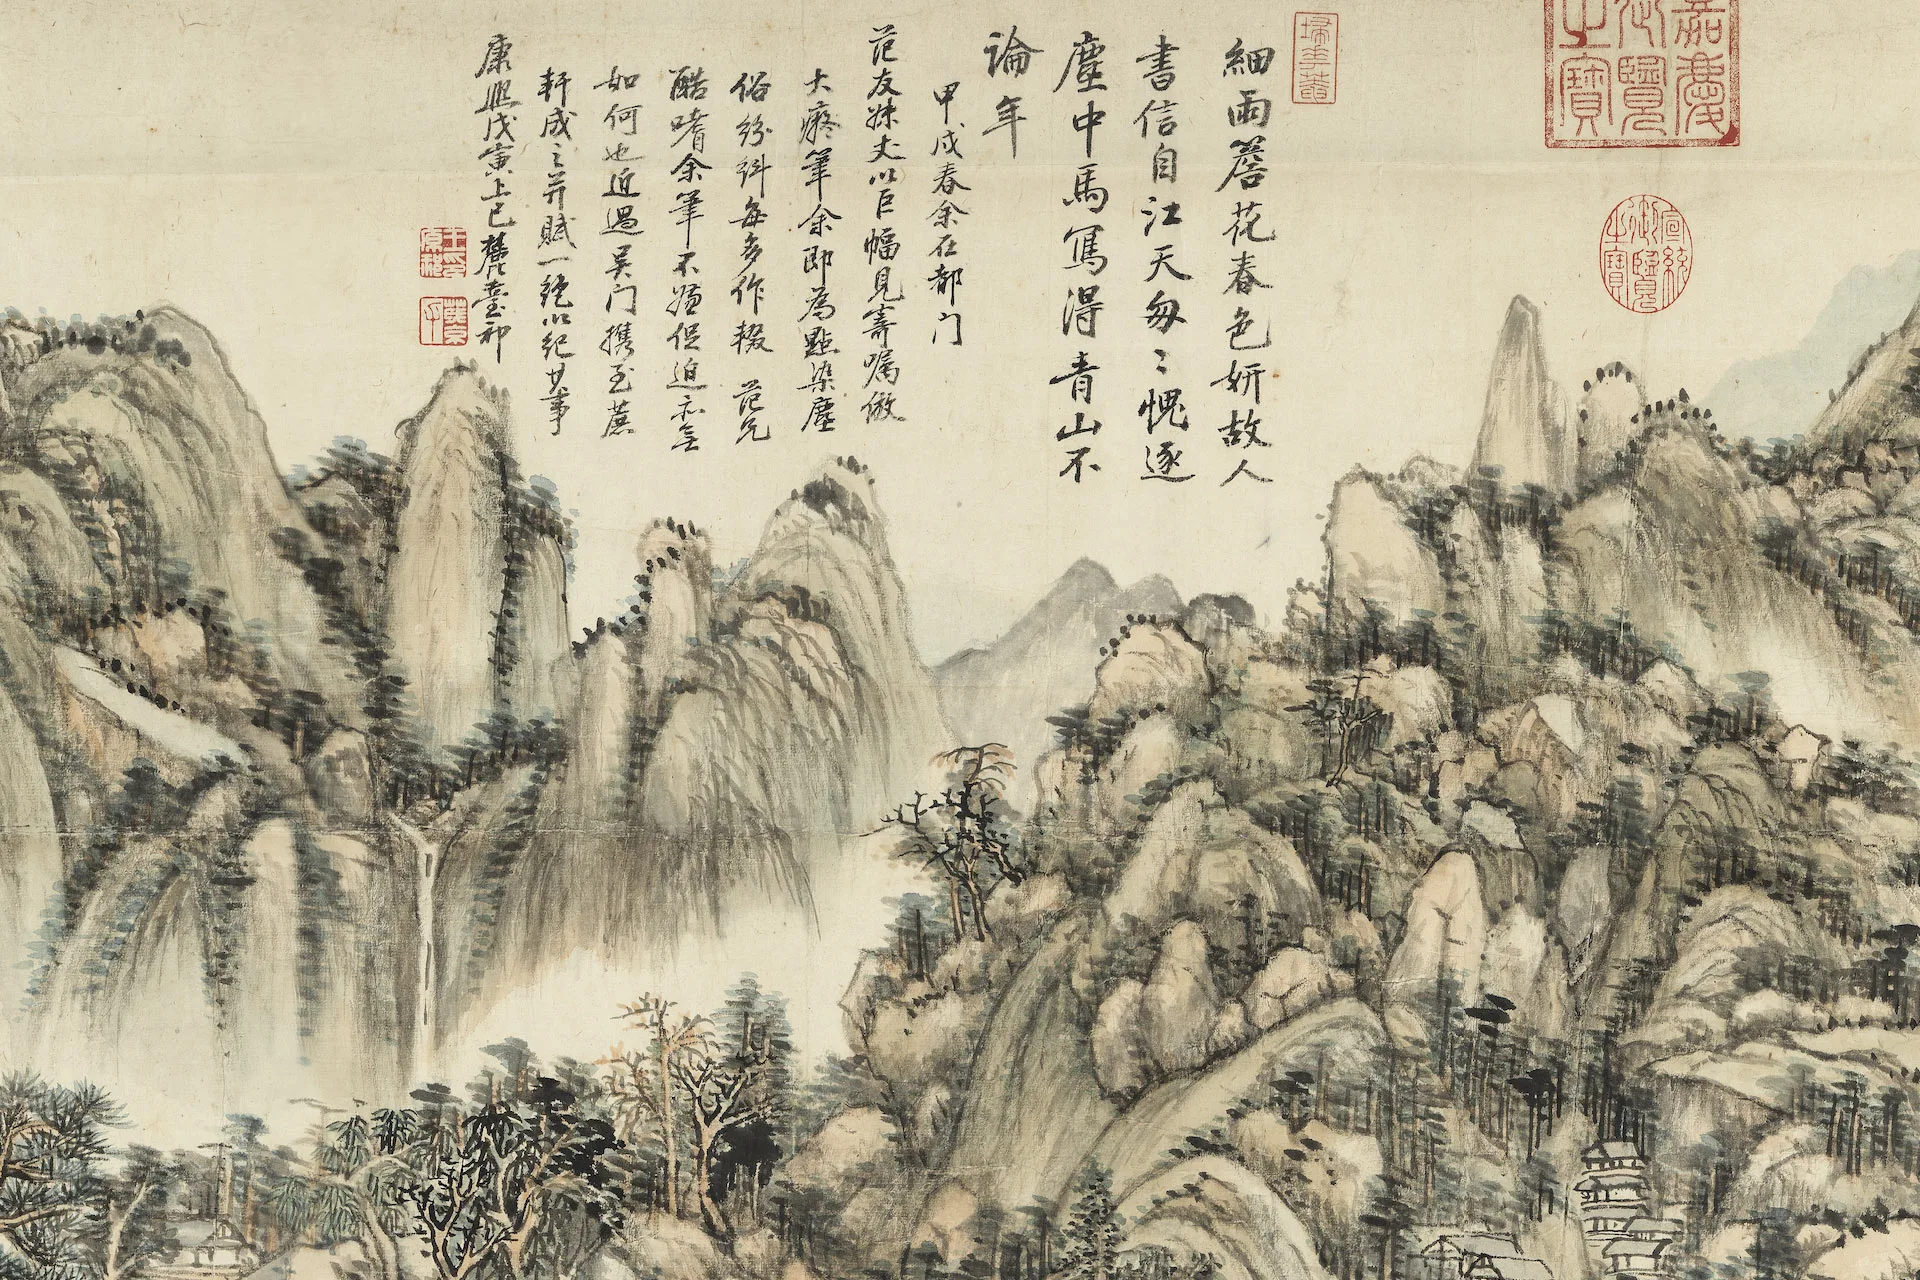 嘉慶御覽之寶
宣統御覽之寶
細雨簷花春色妍故人
書信自江天匆〻愧逐
塵中馬寫得青山不
論年
甲戌春余在都门
范友妹丈以巨幅見寄囑倣
大癡筆余即為點染塵
俗紛糾每多作輟 范兄
酷嗜余筆不嫌促迫亦無
如何也近過吳门携至蔗
軒成之并賦一絶以紀其事
康熙戊寅上巳麓臺祁
王原祁印